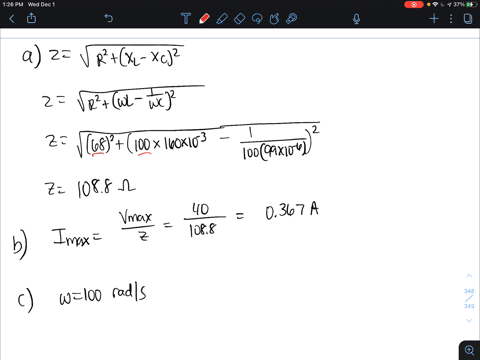 1:26 PM Wed Dec 1
37%
a) z = √(R² + (XL - XC)²)
z = √(R² + (ωL - 1/ωC)²)
z = √((68)² + (100 × 160 × 10⁻³ - 1/100(99×10⁻⁶))²)
z = 108.8 Ω
b) Imax = Vmax/z = 40/108.8 = 0.367 A
c) ω = 100 rad/s
348
349